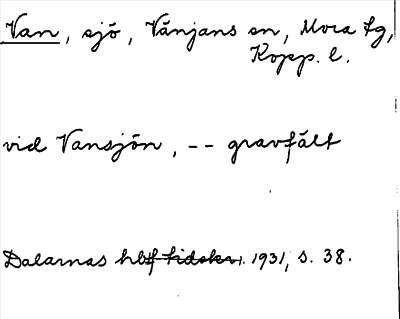 Van, sjö, Vänjans sn, Mora tg,
Kopp. l.
vid Vansjön, -- gravfält
Dalarnas hbf tidskr. 1931, s. 38.